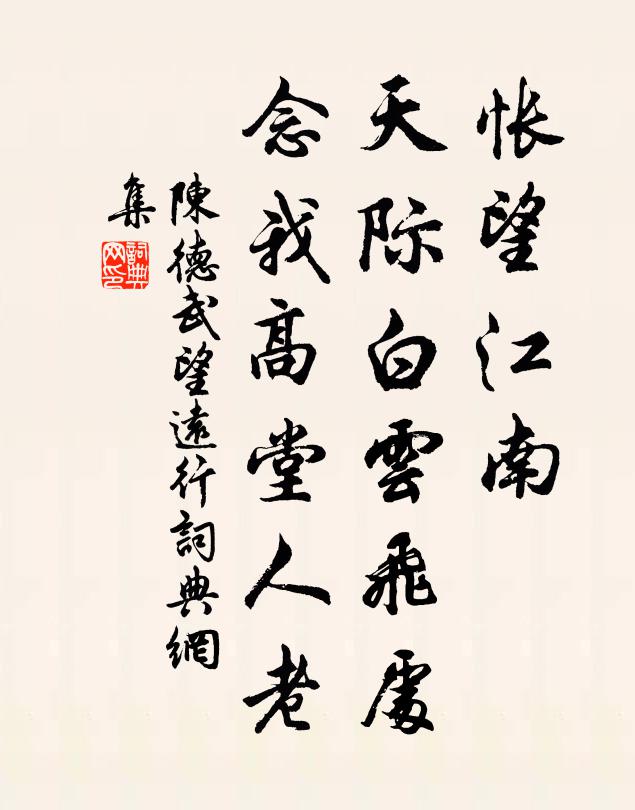 怅望江南
天际白雲飛處
念我高堂人老
陳德武望遠行詞典網
集
詞典
网印